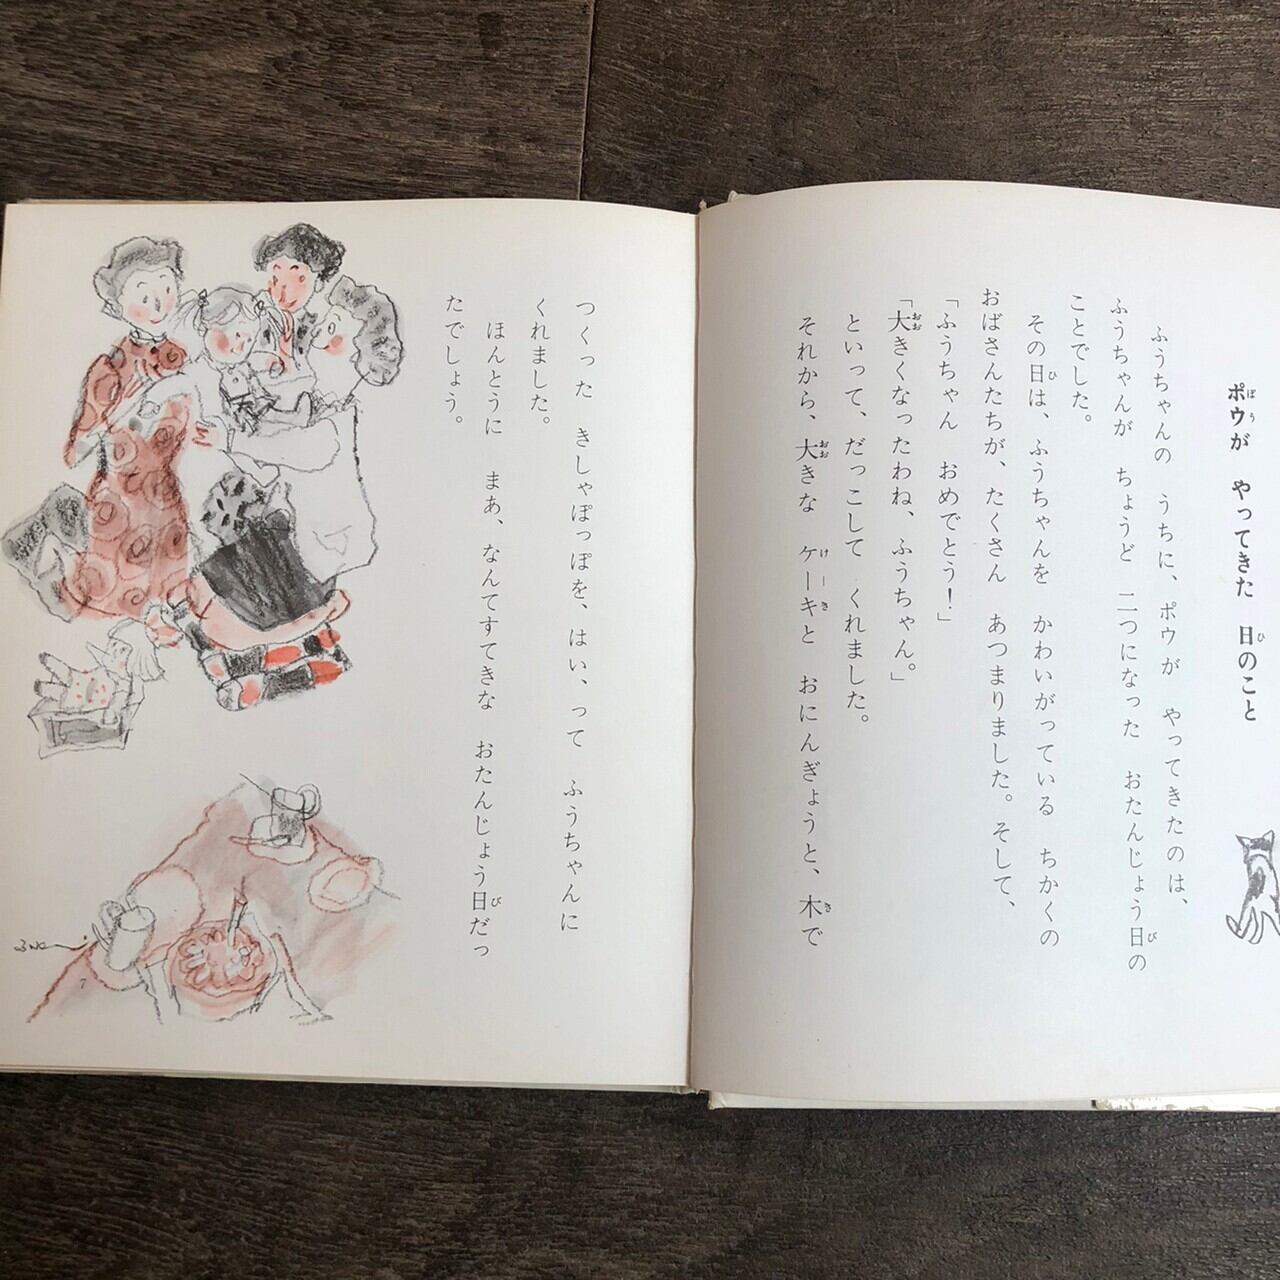 ポウが やってきた 日のこと
ふうちゃんの うちに、ポウが やってきたのは、
ふうちゃんが ちょうど 二つになった おたんじょう日の
ことでした。
その日は、ふうちゃんを かわいがっている ちかくの
おばさんたちが、たくさん あつまりました。そして、
「ふうちゃん おめでとう!」
「大きくなったわね、ふうちゃん。」
といって、だっこして くれました。
それから、大きな ケーキと おにんぎょうと、木で
つくった きしゃぽっぽを、はい、って ふうちゃんに
くれました。
ほんとうに まあ、なんてすてきな おたんじょう日だっ
たでしょう。
7